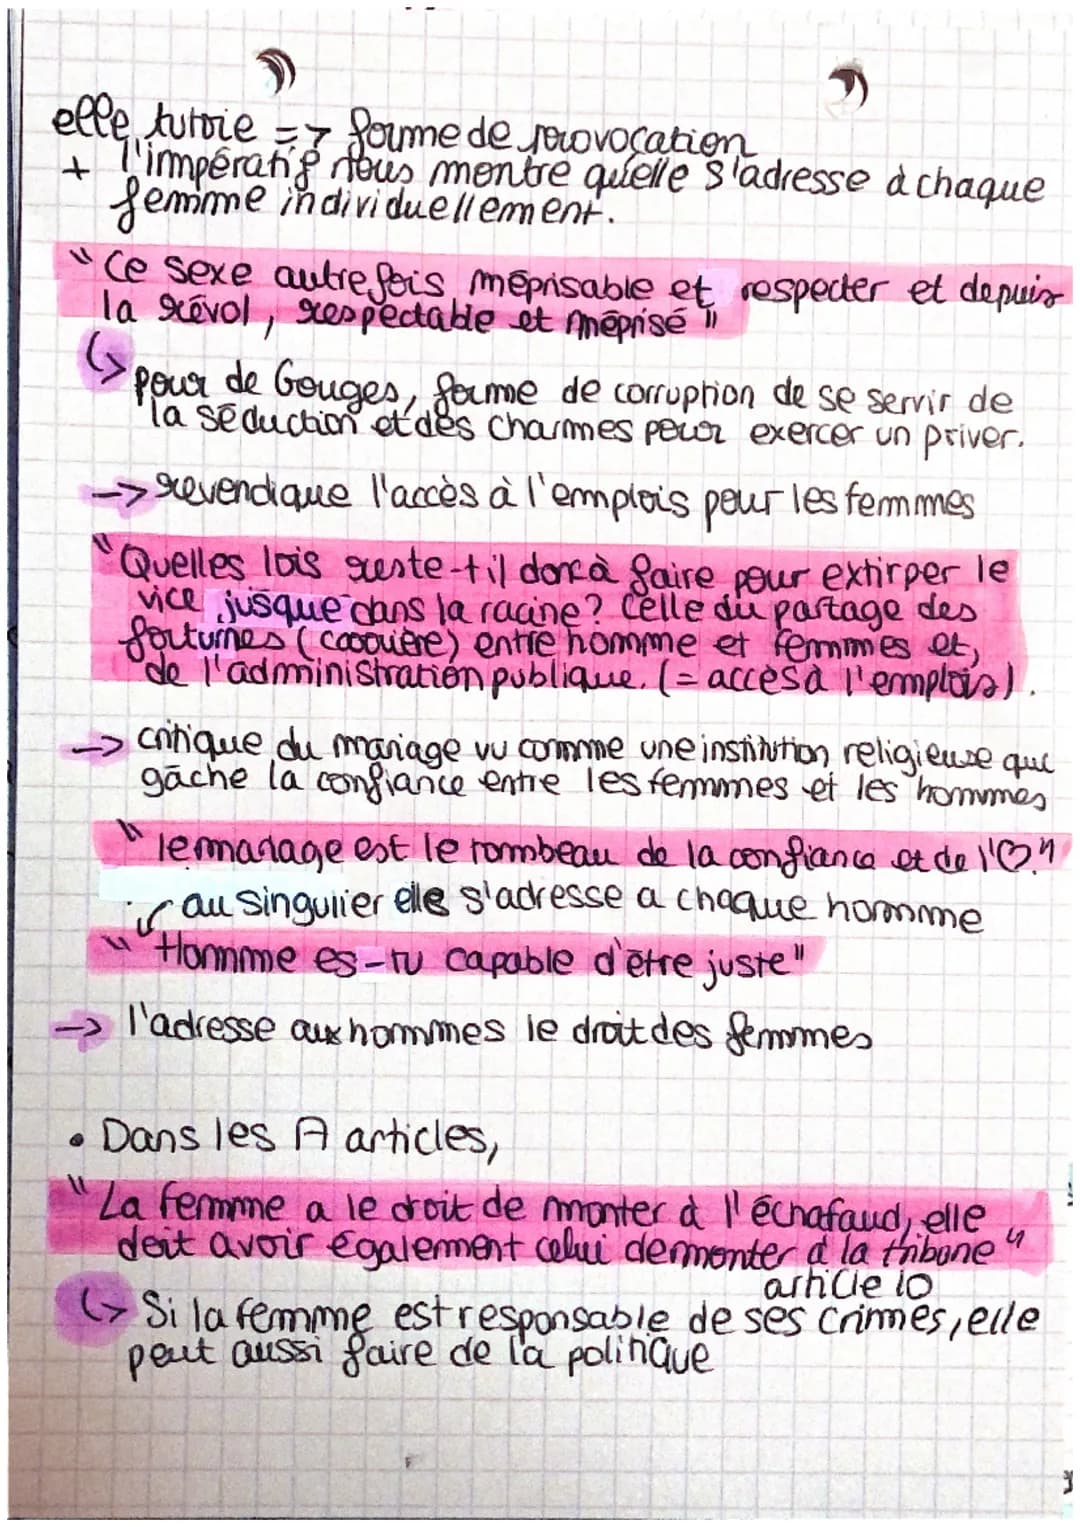 elle tutoie => forme de provocation
+ l'impératif nous montre qu'elle s'adresse à chaque
femme individuellement.
"Ce sexe autrefois méprisable et respecter et depuis
la révol, respectable et méprisé"
↳ pour de Gouges, forme de corruption de se servir de
la séduction et des charmes pour exercer un priver.
-> revendique l'accès à l'emplois pour les femmes
"Quelles lois reste-t il donc à faire pour extirper le
vice jusque dans la racine? Celle du partage des
fortunes ( ) entre homme et femmes et,
de l'administration publique. (= accès à l'emplois).
-> critique du mariage vu comme une institution religieuse qui
gâche la confiance entre les femmes et les hommes
"le mariage est le tombeau de la confiance et de l'♡."
au singulier elle s'adresse a chaque homme
"Homme es-tu capable d'être juste"
-> l'adresse aux hommes le droit des femmes
• Dans les A articles,
"La femme a le droit de monter à l'échafaud, elle
doit avoir également celui de monter à la tribone"
article 10
↳ Si la femme est responsable de ses crimes, elle
peut aussi faire de la politique